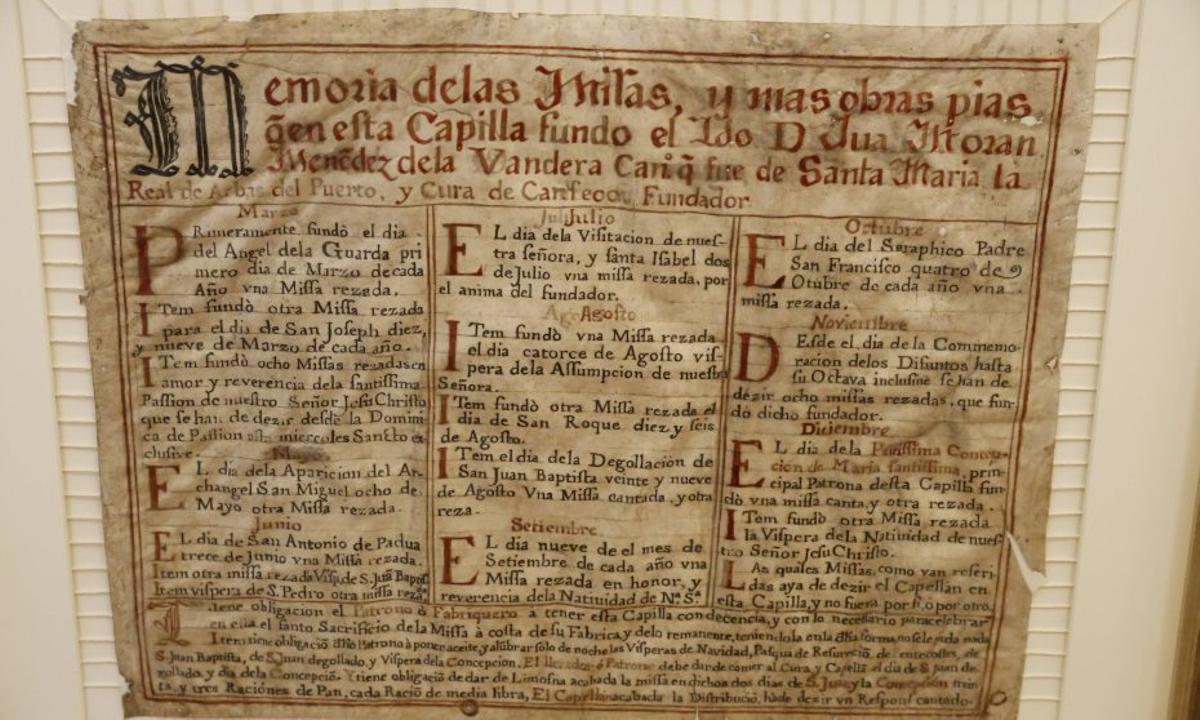 Memoria delas Missas, y mas obras pias
q̃ en esta Capilla fundo el Ldo D Jua Moran
Menẽdez dela Vandera Can. q̃ fue de Santa Maria la
Real de Arbas del Puerto, y Cura de Carfeoo, Fundador
Marzo
PRimeramente fundò el dia
del Angel dela Guarda pri
mero dia de Marzo decada
Año vna Missa rezada.
ITem fundò otra Missa rezada
para el dia de San Joseph diez,
y nueve de Marzo de cada año.
ITem fundò ocho Missas rezadas en
amor y reverencia dela santissima
Passion de nuestro Señor JesuChristo
que se han de dezir desde la Domini
ca de Passion miercoles Sancto
clusive.
Mayo
EL dia dela Aparicion del Ar
changel San Miguel ocho de
Mayo otra Missa rezada.
Junio
EL dia de San Antonio de Padua
trece de Junio vna Missa rezada.
Item otra missa rezada Visp. de S. Juã Baptis
Item vispera de S. Pedro otra missa rezada
Julio
EL dia dela Visitacion de nues-
tra señora, y santa Isabel dos
de Julio vna missa rezada, por
el anima del fundador.
Agosto
ITem fundò vna Missa rezada
el dia catorce de Agosto vis-
pera dela Assumpcion de nuestra
Señora.
ITem fundò otra Missa rezada el
dia de San Roque diez y seis
de Agosto.
ITem el dia dela Degollaciòn de
San Juan Baptista veinte y nueve
de Agosto Vna Missa cantada, y otra
reza.
Setiembre
EL dia nueve de el mes de
Setiembre de cada año vna
Missa rezada en honor, y
reverencia dela Natiuidad de Nª. Sª.
Octubre
EL dia del Seraphico Padre
San Francisco quatro de
Otubre de cada año vna
missa rezada.
Noviembre
DEsde el dia de la Commemo-
racion delos Difuntos hasta
su Octava inclusiue se han de
dezir ocho missas rezadas, que fun-
dò dicho fundador.
Diciembre
EL dia dela Purissima Concep-
cion de Maria santissima, prin-
cipal Patrona desta Capilla fun
dò vna missa canta, y otra rezada.
ITem fundò otra Missa rezada
la Vispera dela Natiuidad de nues
tro Señor JesuChristo.
LAs quales Missas, como van referi-
das aya de dezir el Capellàn en
esta Capilla, y no fuera por si, ò por otro.
Tiene obligacion el Patrono ò Fabriquero à tener esta Capilla con decencia, y con lo necessario para celebrar
en ella el santo Sacrificio dela Missa à costa de su Fabrica, y delo remanente, teniendola en la forma no se le pida nada
Item tiene obligaciõ Patrono à poner aceite, y alũbrar solo de noche las Visperas de Navidad, Pasqua de Resureciõ, de
S. Juan Baptista, de S. Juan degollado, y Vispera dela Concepcion. El ò Patrono debe dar de comer al Cura y Capellã el dia de S. Juan de-
gollado, y dia dela Concepciõ. Y tiene obligaciõ de dar de Limosna acabada la missa en dichos dos dias de S. Juan y la Concepciõn trein
ta, y tres Raciònes de Pan, cada Raciõ de media libra, El Capellàn acabada la Distribuciõ, ha de dezir vn Respons cantado.